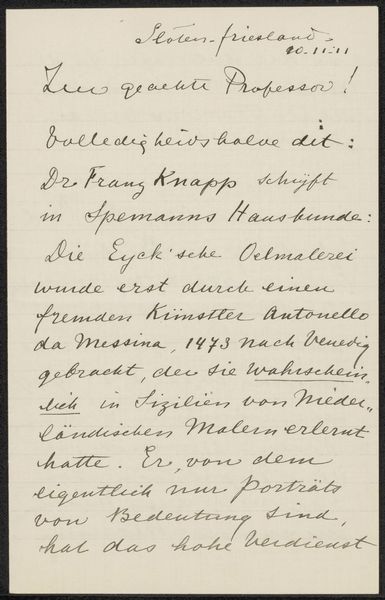 Sloten-friesland.
20-11-11
Zeer geachte Professor!
Volledigheidshalve dit:
Dr Franz Knapp schrijft
in Spemanns Hauskunde:
Die Eyck'sche Oelmalerei
wurde erst durch einen
fremden Künstler Antonello
da Messina, 1473 nach Venedig
gebracht, der sie wahrschein„
lich in Sizilien von Nieder„
ländischen Malern erlernt
hatte. Er, von dem
eigentlich nur Porträts
von Bedeutung sind,
hat das hohe Verdienst